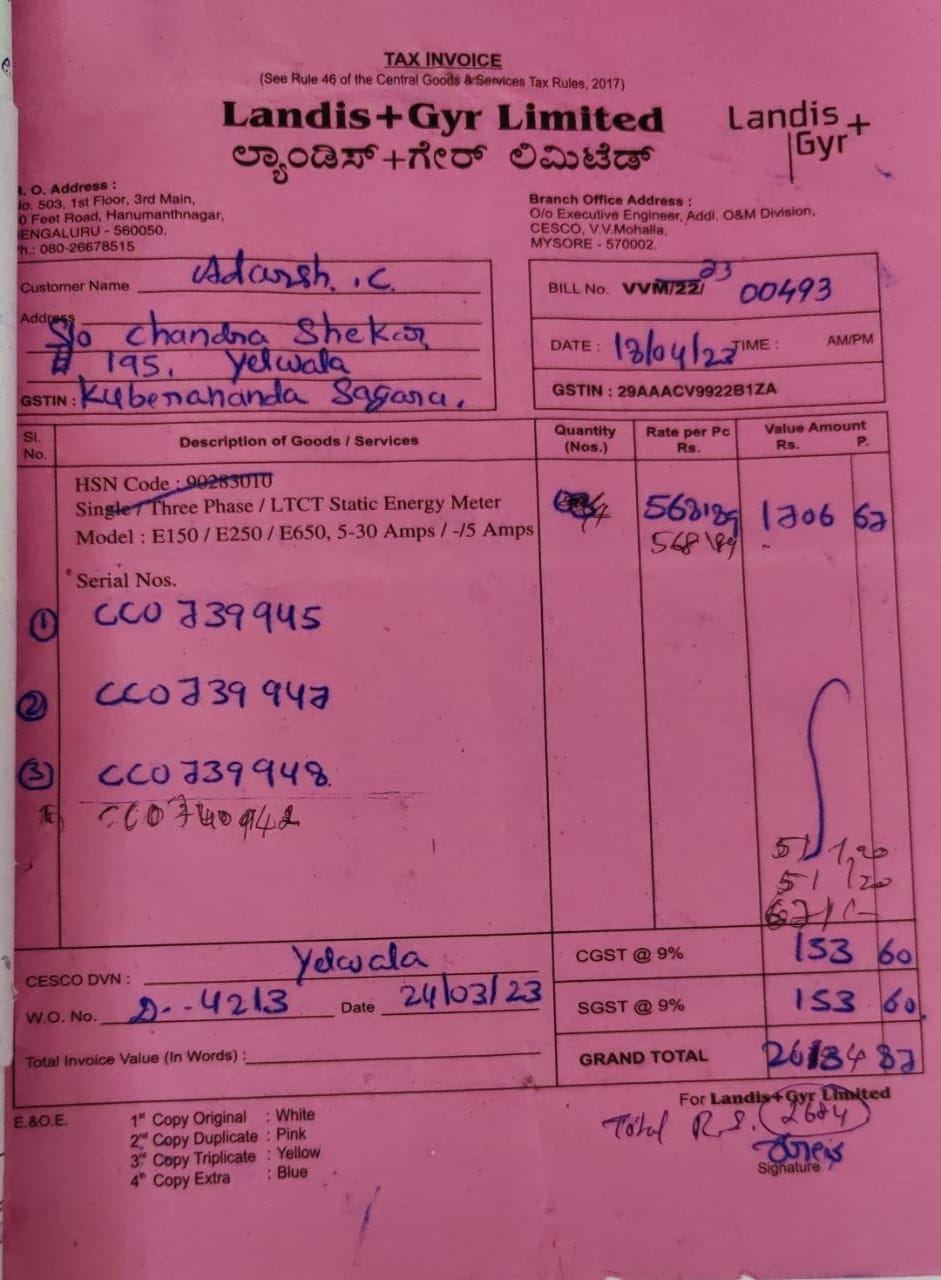 TAX INVOICE
(See Rule 46 of the Central Goods & Services Tax Rules, 2017)
Landis+Gyr Limited
ಲ್ಯಾಂಡಿಸ್+ಗೇರ್ ಲಿಮಿಟೆಡ್
Landis
Gyr+
. O. Address :
o. 503, 1st Floor, 3rd Main,
0 Feet Road, Hanumanthnagar,
ENGALURU - 560050.
h.: 080-26678515
Branch Office Address :
O/o Executive Engineer, Addl. O&M Division,
CESCO, V.V.Mohalla,
MYSORE - 570002.
Customer Name Adarsh. .C.
Address S/o Chandra Shekar
# 195, Yelwala
GSTIN : Kubenananda Sagara.
BILL No. VVM/22/ 23 00493
DATE : 13/04/23 TIME : AM/PM
GSTIN : 29AAACV9922B1ZA
Sl. No. Description of Goods / Services Quantity (Nos.) Rate per Pc Rs. Value Amount Rs. P.
HSN Code : 90283010
Single / Three Phase / LTCT Static Energy Meter 568/89 1706 67
Model : E150 / E250 / E650, 5-30 Amps / -/5 Amps 568/89
Serial Nos.
① CCO 739945
② CCO 739 947
③ CCO 739948.
CCO 740942
51 1,20
51 120
CESCO DVN : Yelwala
W.O. No. D--4213 Date 24/03/23
Total Invoice Value (In Words) :
CGST @ 9% 153 60
SGST @ 9% 153 60.
GRAND TOTAL 2684 87
E.&O.E.
1st Copy Original : White
2nd Copy Duplicate : Pink
3rd Copy Triplicate : Yellow
4th Copy Extra : Blue
For Landis+Gyr Limited
Total R.S. 2684
Signature